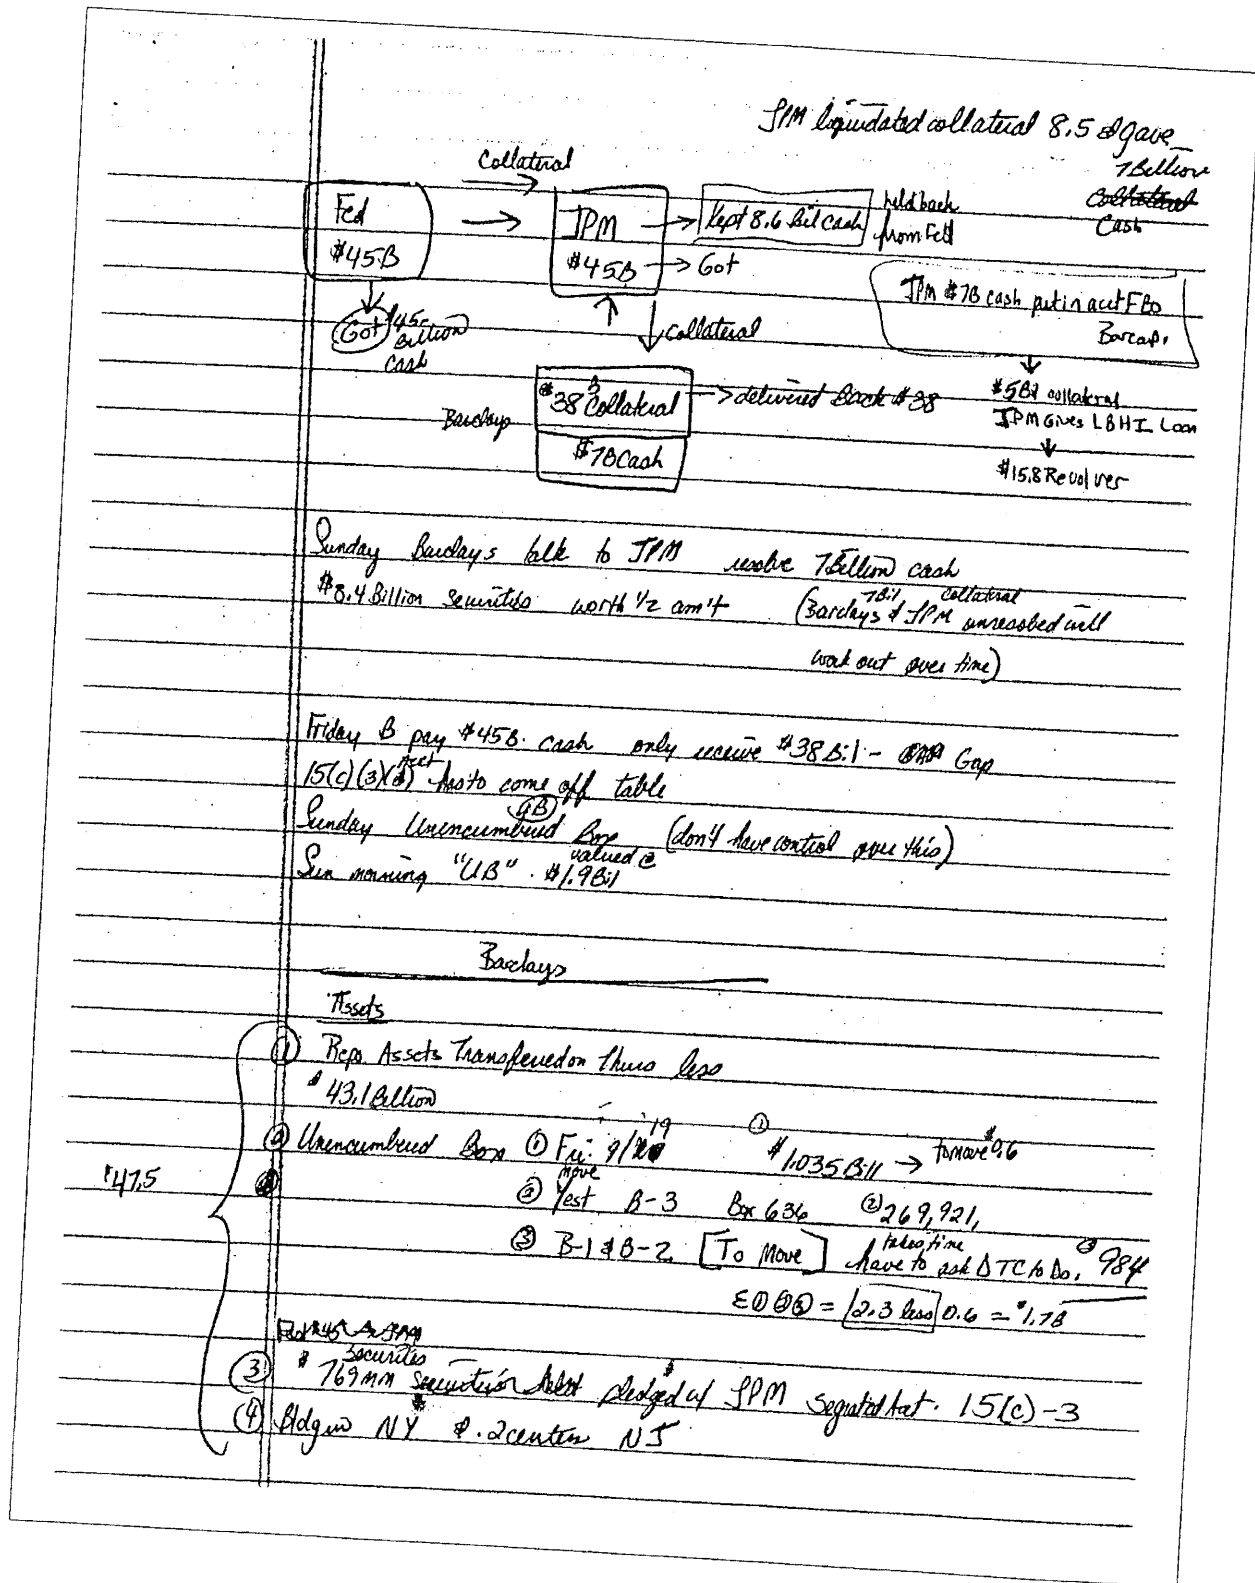 JPM liquidated collateral 8.5 & gave
7 Billion
Cash
Collateral
Fed
$45B
JPM
$45B → Got
Kept 8.6 Bil cash
held back
from Fed
Got $45-
Billion
cash
Collateral
JPM $7B cash put in acct FBO
Barcap.
Barclays
$38 B Collateral
→ delivered back $38
$7B Cash
$5Bil collateral
JPM Gives LBHI Loan
$15.8 Revolver
Sunday Barclays talk to JPM resolve 7 Billion cash
$8.4 Billion Securities worth 1/2 am't (Barclays & JPM 7 Bil collateral unresolved will
work out over time)
Friday B pay $45B. cash only receive $38 Bil - Gap
15(c)(3) Acct has to come off table
Sunday Unencumbered Box (UB) (don't have control over this)
Sun morning "UB" . valued @ $1.9 Bil
Barclays
Assets
① Repo Assets Transfered on Thurs less
$43.1 Billion
② Unencumbered Box ① Fri. 9/19 ① $1.035 Bill → to move $0.6
$47.5
② Yest move B-3 Box 636 ② 269,921,
③ B-1 & B-2 [To Move] takes time have to ask DTC to Do. ③ 984
Σ①②③ = 2.3 less 0.6 = $1.7B
③ $769mm Securities pledged w/ JPM Acct. 15(c)-3
④ Bldg in NY & . 2 centers NJ